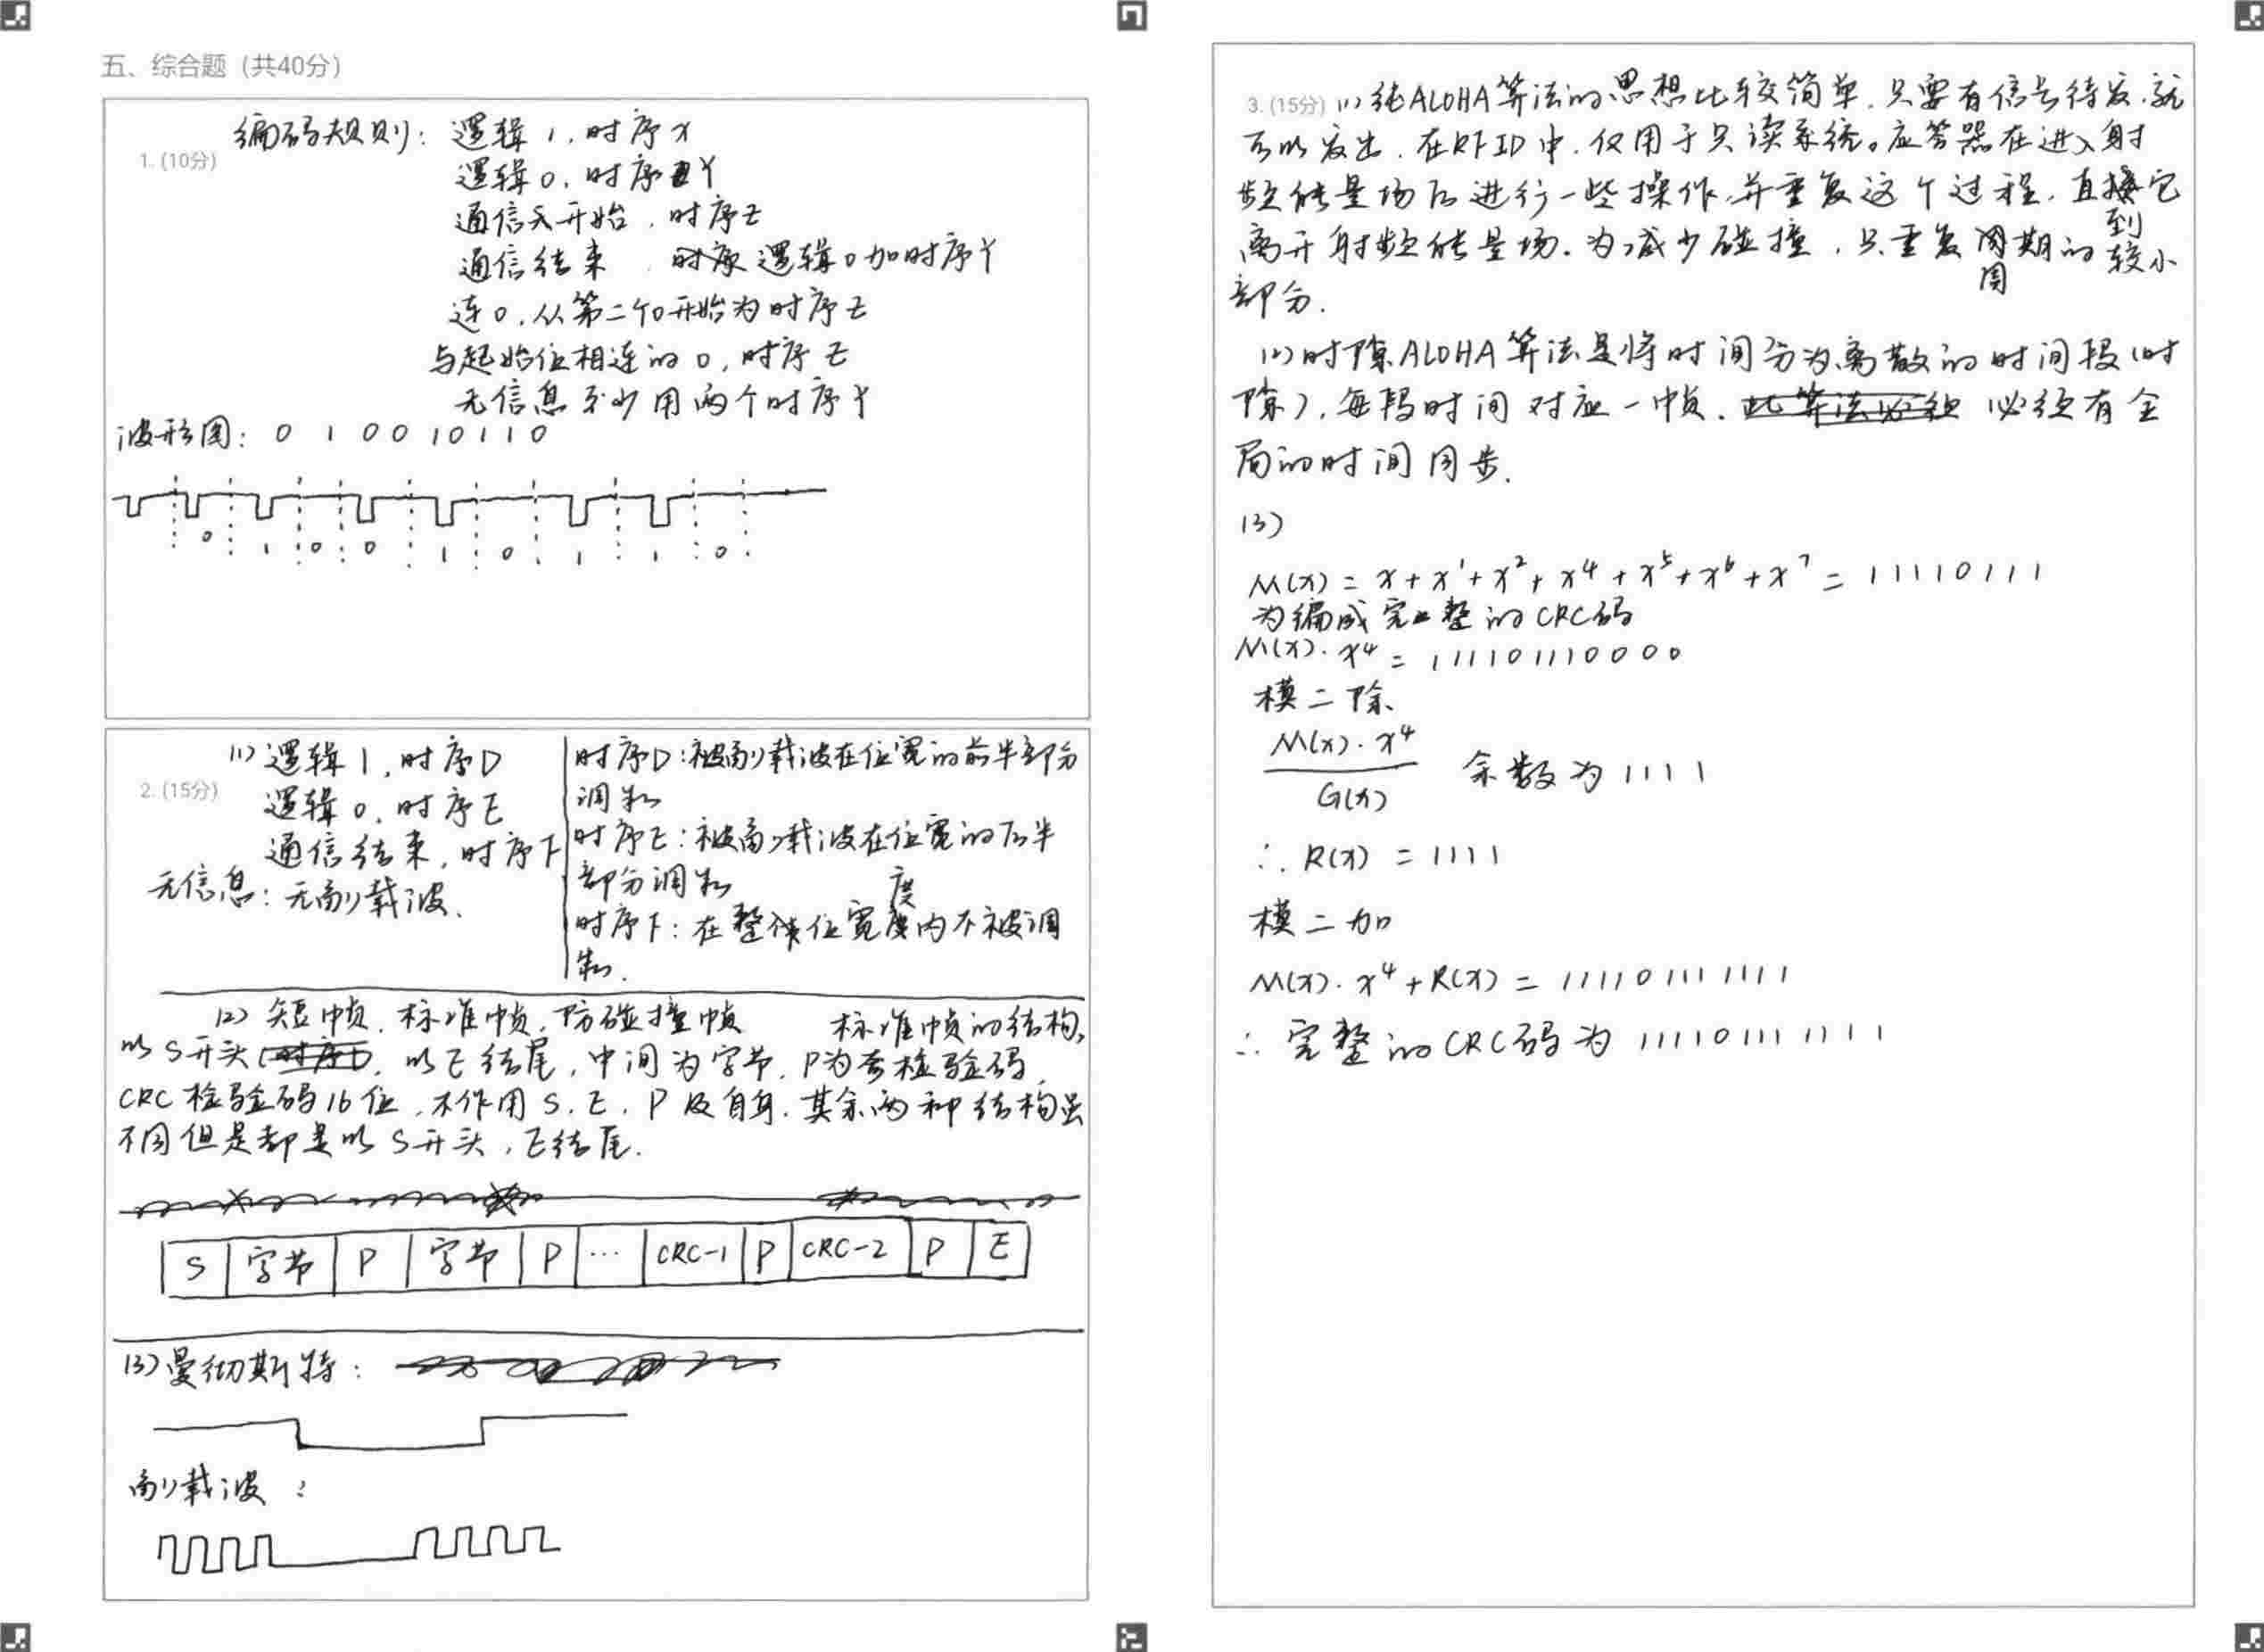 五、综合题（共40分）
编码规则：逻辑1，时序X
1. (10分)
逻辑0，时序Y
通信开始，时序Z
通信结束，逻辑0加时序Y
连0，从第二个0开始为时序Z
与起始位相连的0，时序Z
无信息至少用两个时序Y
波形图：0 1 0 0 1 0 1 1 0
0 1 0 0 1 0 1 1 0
(1) 逻辑1，时序D
2. (15分)
逻辑0，时序E
通信结束，时序F
无信息：无副载波.
时序D：被副载波在位宽的前半部分
调制
时序E：被副载波在位宽的后半
部分调制
时序F：在整体位宽度内不被调
制.
(2) 短帧，标准帧，防碰撞帧 标准帧的结构，
以S开头，以E结尾，中间为字节，P为奇检验码，
CRC检验码16位，不作用S，E，P及自身. 其余两种结构虽
不同但是都是以S开头，E结尾.
S 字节 P 字节 P … CRC-1 P CRC-2 P E
(3) 曼彻斯特：
副载波：
3. (15分) (1) 纯ALOHA算法的思想比较简单，只要有信号待发，就
可以发出，在RFID中，仅用于只读系统。应答器在进入射
频能量场后进行一些操作，并重复这个过程，直到它
离开射频能量场. 为减少碰撞，只重复周期的较小
部分.
(2) 时隙ALOHA算法是将时间分为离散的时间段（时
隙），每段时间对应一帧. 必须有全
局的时间同步.
(3)
M(x) = x + x¹ + x² + x⁴ + x⁵ + x⁶ + x⁷ = 11110111
为编成完整的CRC码
M(x)·x⁴ = 111101110000
模二除
M(x)·x⁴
G(x)
余数为1111
∴ R(x) = 1111
模二加
M(x)·x⁴ + R(x) = 111101111111
∴ 完整的CRC码为 111101111111